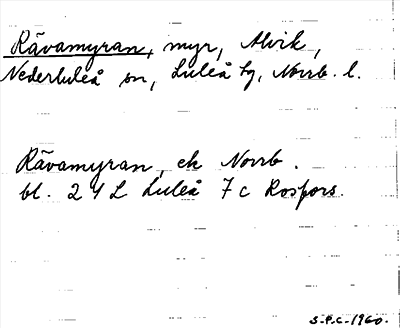 Rävamyran, myr, Alvik,
Nederluleå sn, Luleå tg, Norrb. l.
Rävamyran, ek Norrb.
bl. 24 L Luleå 7 c Rosfors.
S.P.C. 1960.